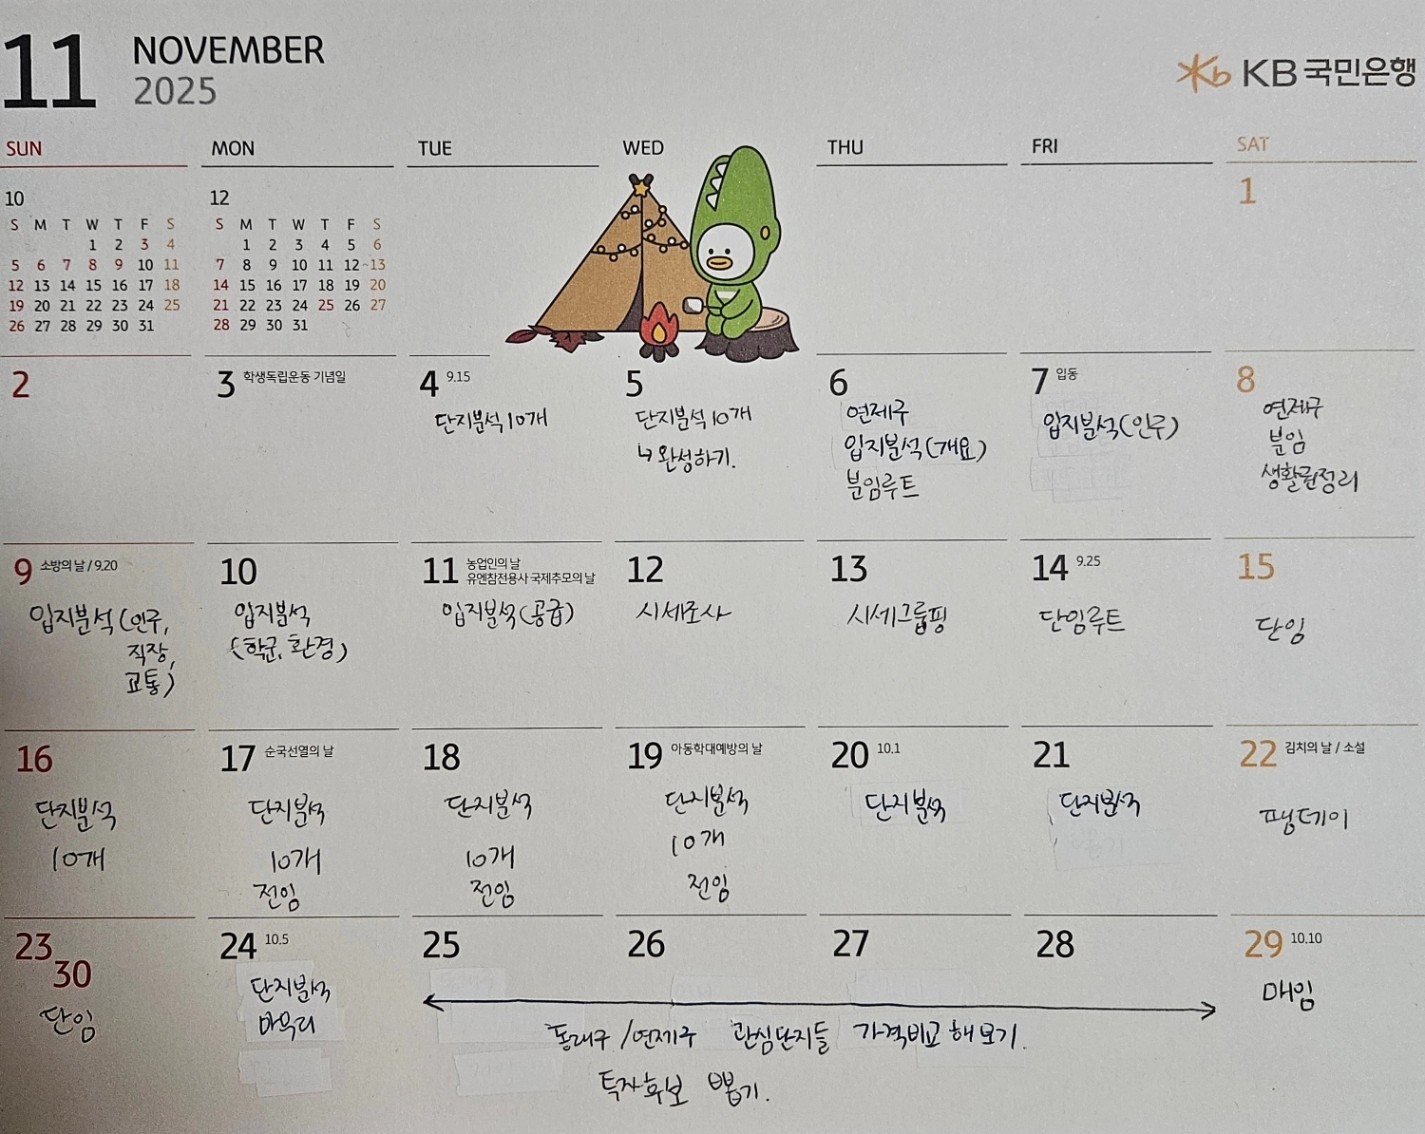 11 NOVEMBER
2025
KB국민은행
SUN MON TUE WED THU FRI SAT
10
S M T W T F S
1 2 3 4
5 6 7 8 9 10 11
12 13 14 15 16 17 18
19 20 21 22 23 24 25
26 27 28 29 30 31
12
S M T W T F S
1 2 3 4 5 6
7 8 9 10 11 12 13
14 15 16 17 18 19 20
21 22 23 24 25 26 27
28 29 30 31
1
2
3 학생독립운동 기념일
4 9.15
단지분석 10개
5
단지분석 10개
↳ 완성하기.
6
연제구
입지분석(개요)
분임루트
7 입동
입지분석(인구)
8
연제구
분임
생활권정리
9 소방의 날 / 9.20
입지분석(인구,
직장,
교통)
10
입지분석
(학군, 환경)
11 농업인의 날
유엔참전용사 국제추모의 날
입지분석(공급)
12
시세조사
13
시세그룹핑
14 9.25
단임루트
15
단임
16
단지분석
10개
17 순국선열의 날
단지분석
10개
전임
18
단지분석
10개
전임
19 아동학대예방의 날
단지분석
10개
전임
20 10.1
단지분석
21
단지분석
22 김치의 날 / 소설
월데이
23
30
단임
24 10.5
단지분석
마무리
25
26
27
28
동래구 / 연제구 관심단지들 가격비교 해보기.
투자후보 뽑기.
29 10.10
매임